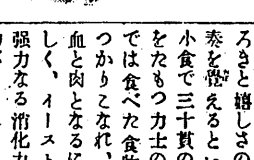 ろきと嬉しさの
奏を覺えるとい
小食で三十貫の
をたもつ力士の
では食べた食物
つかりこなれ、
血と肉となるに
しく、イースト
強力なる消化力